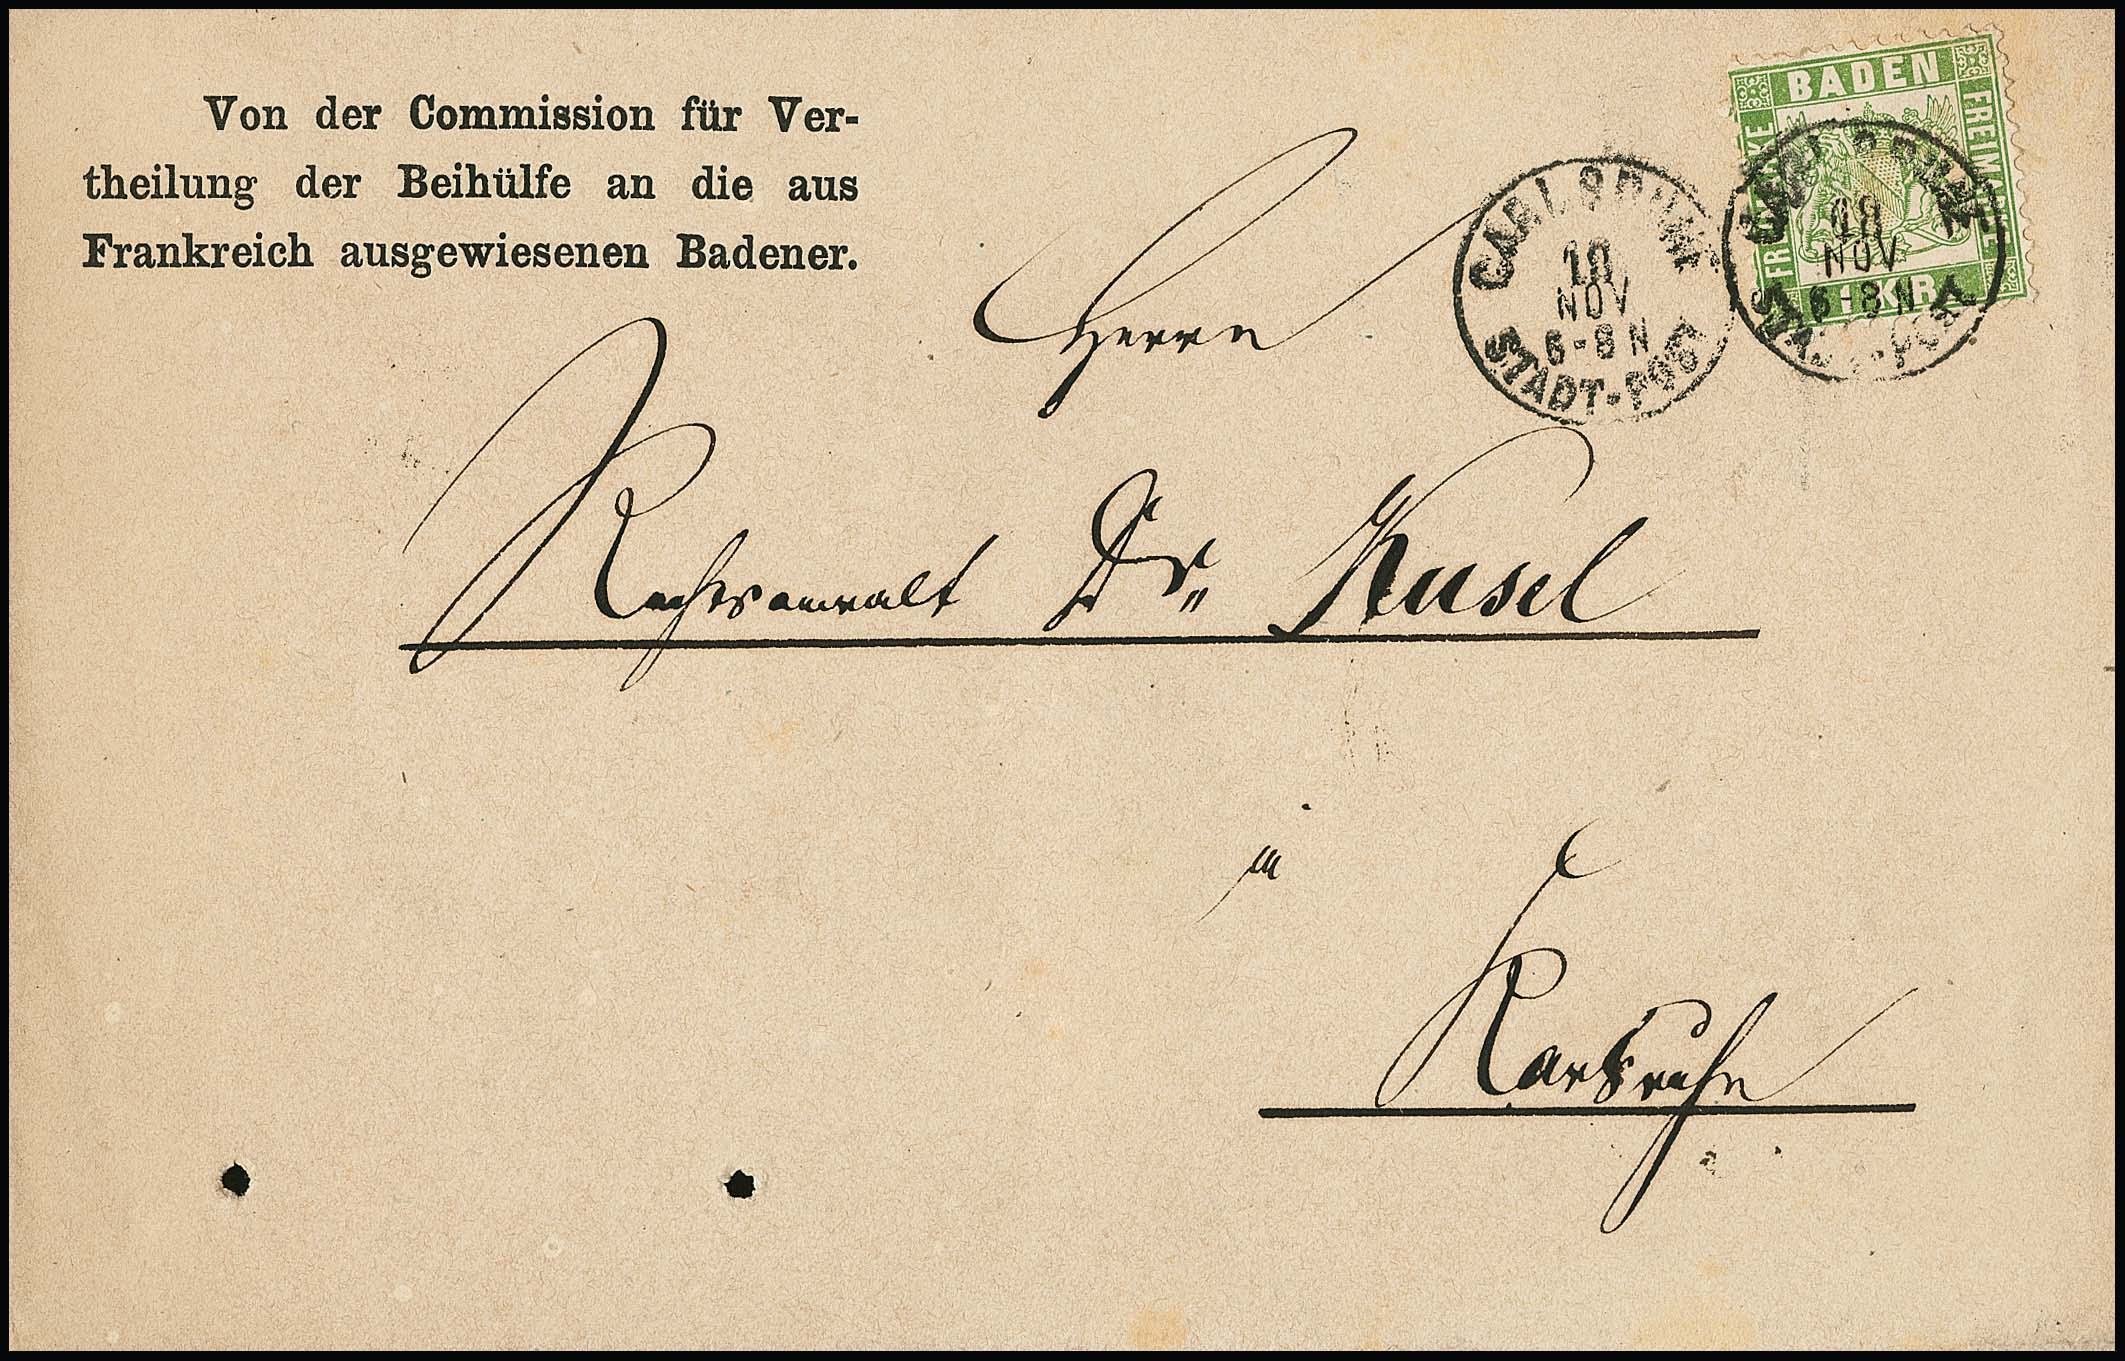 Von der Commission für Ver-
theilung der Beihülfe an die aus
Frankreich ausgewiesenen Badener.
BADEN
FREIMARKE
FREIMARKE
1 KR.
CARLSRUHE
10
NOV
6-8 N
STADT-POST
CARLSRUHE
10
NOV
6-8 N
STADT-POST
Herrn
Rechtsanwalt Dr. Kusel
in
Karlsruhe